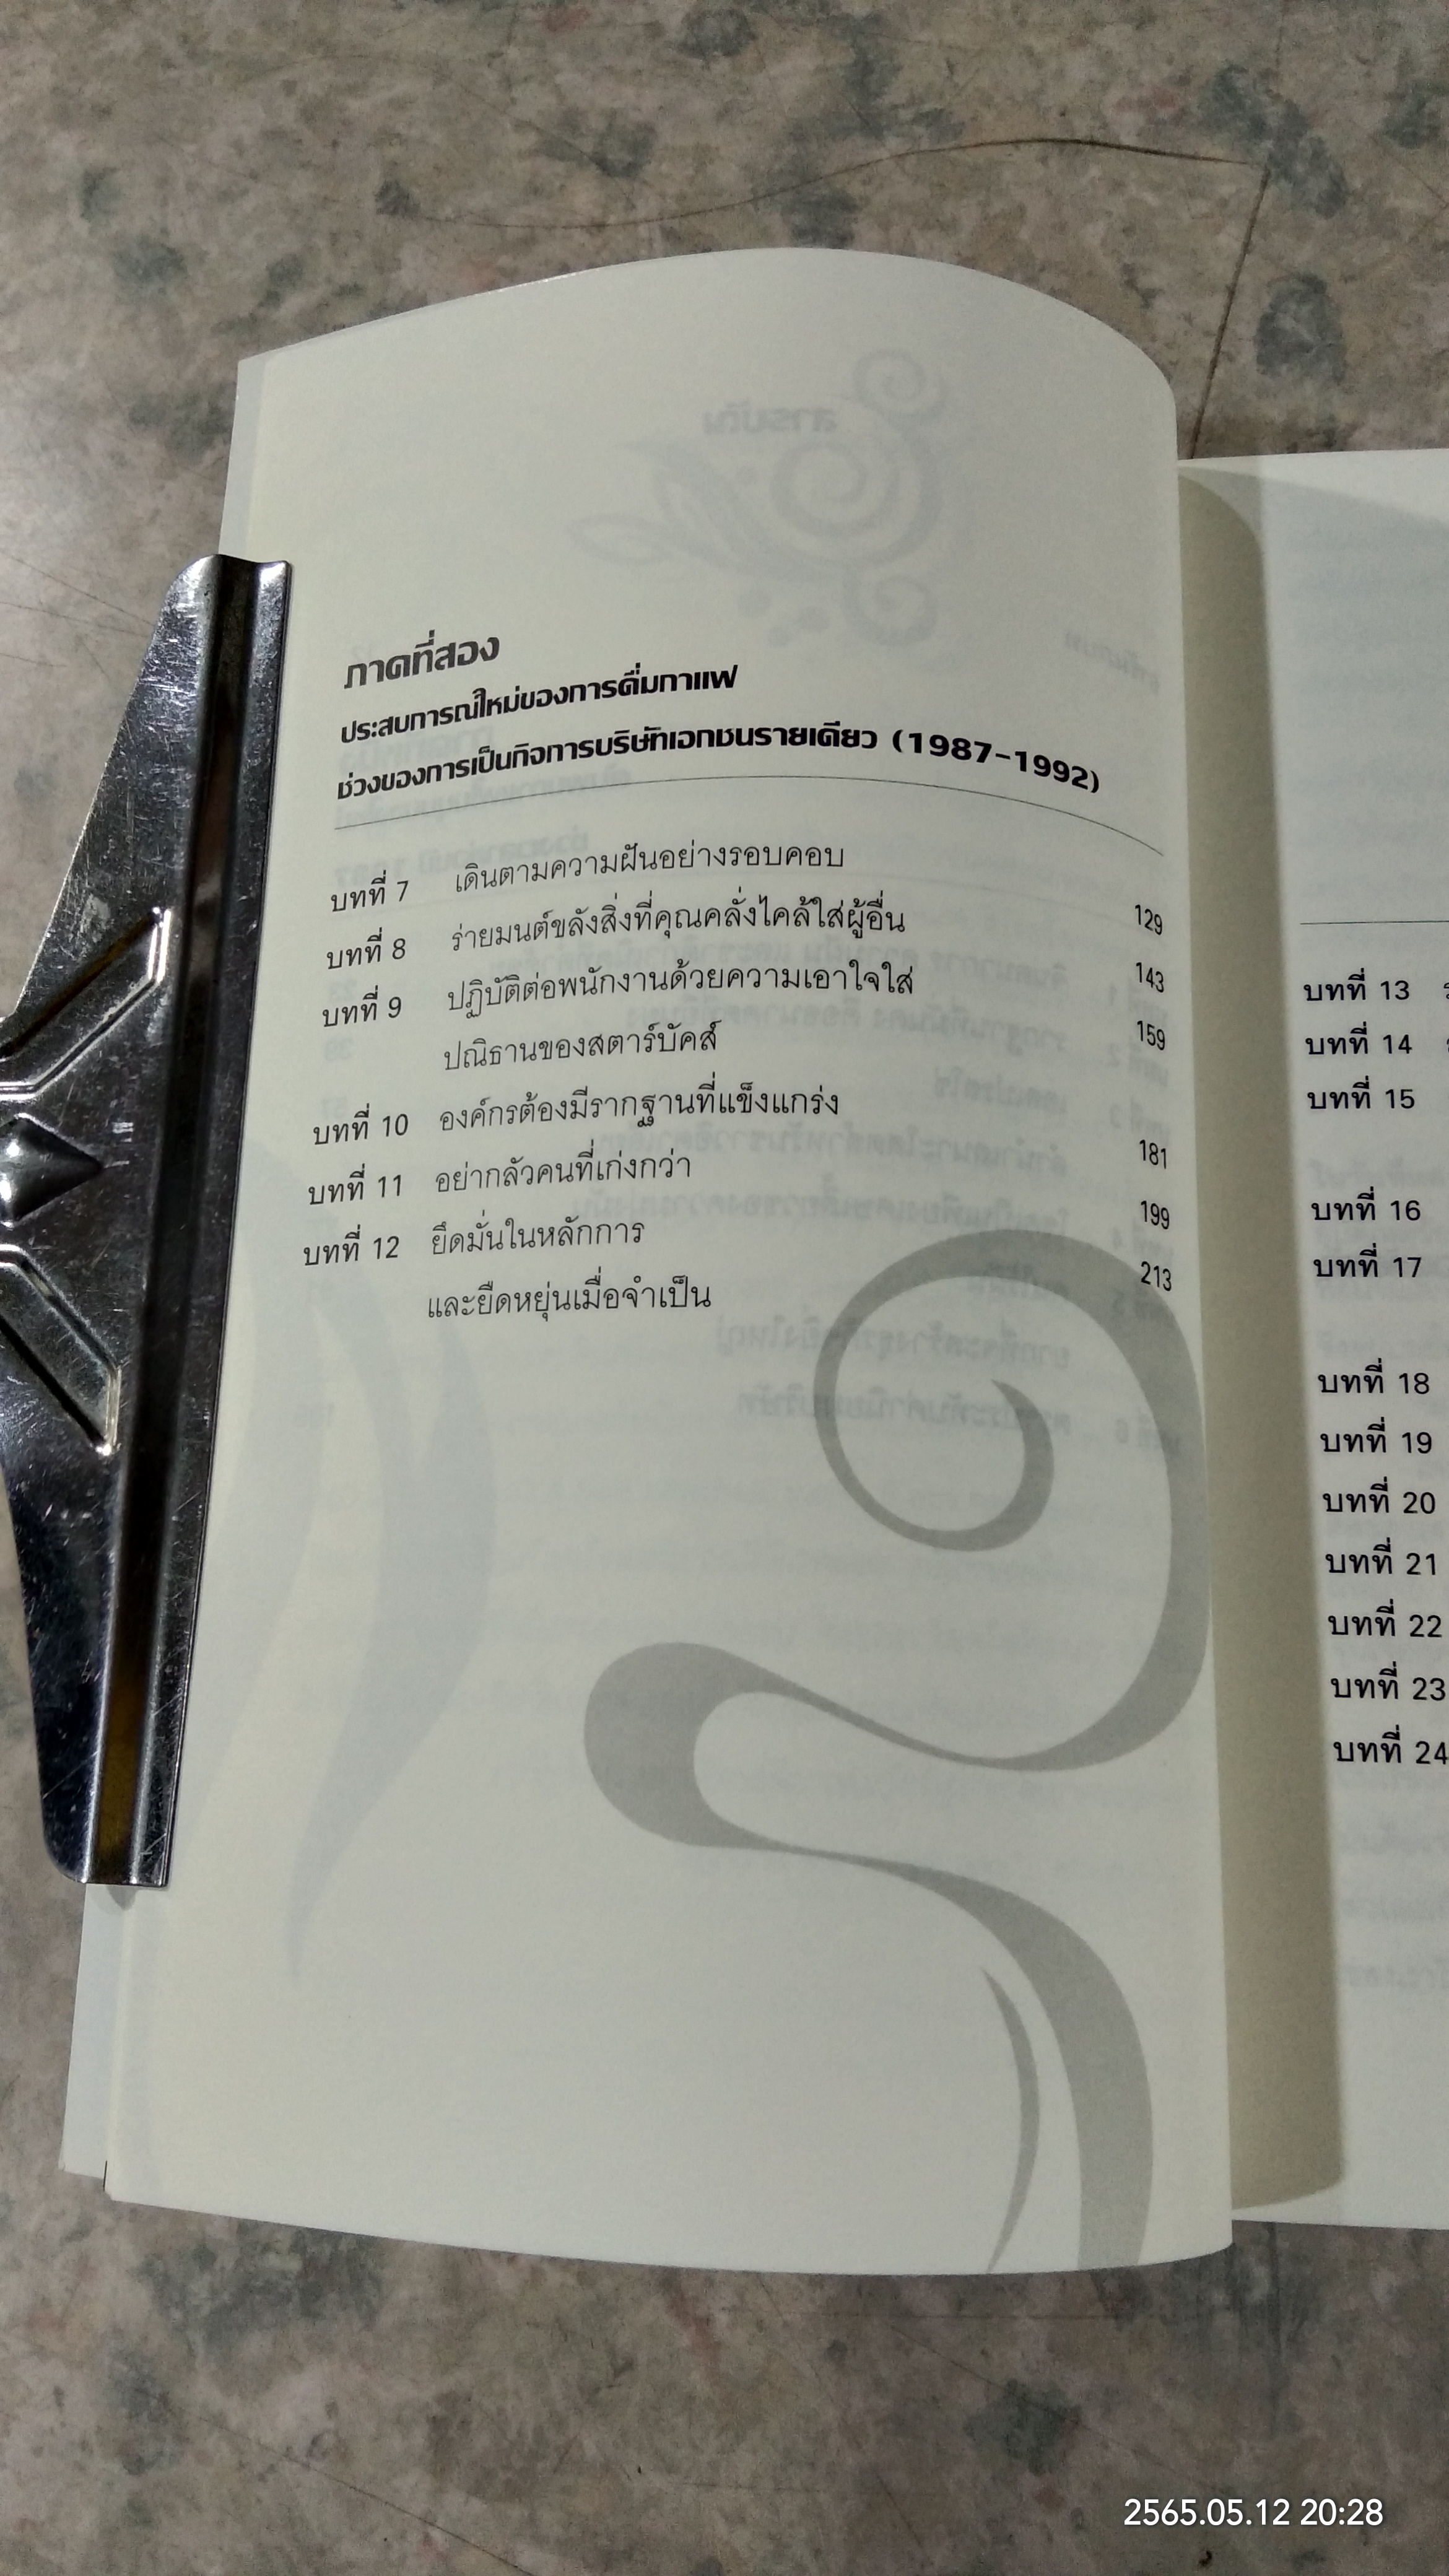 ภาคที่สอง
ประสบการณ์ใหม่ของการดื่มกาแฟ
ช่วงของการเป็นกิจการบริษัทเอกชนรายเดียว (1987-1992)
บทที่ 7 เดินตามความฝันอย่างรอบคอบ 129
บทที่ 8 ร่ายมนต์ขลังสิ่งที่คุณคลั่งไคล้ใส่ผู้อื่น 143
บทที่ 9 ปฏิบัติต่อพนักงานด้วยความเอาใจใส่ 159
ปณิธานของสตาร์บัคส์
บทที่ 10 องค์กรต้องมีรากฐานที่แข็งแกร่ง 181
บทที่ 11 อย่ากลัวคนที่เก่งกว่า 199
บทที่ 12 ยึดมั่นในหลักการ 213
และยืดหยุ่นเมื่อจำเป็น
บทที่ 13
บทที่ 14
บทที่ 15
บทที่ 16
บทที่ 17
บทที่ 18
บทที่ 19
บทที่ 20
บทที่ 21
บทที่ 22
บทที่ 23
บทที่ 24
2565.05.12 20:28